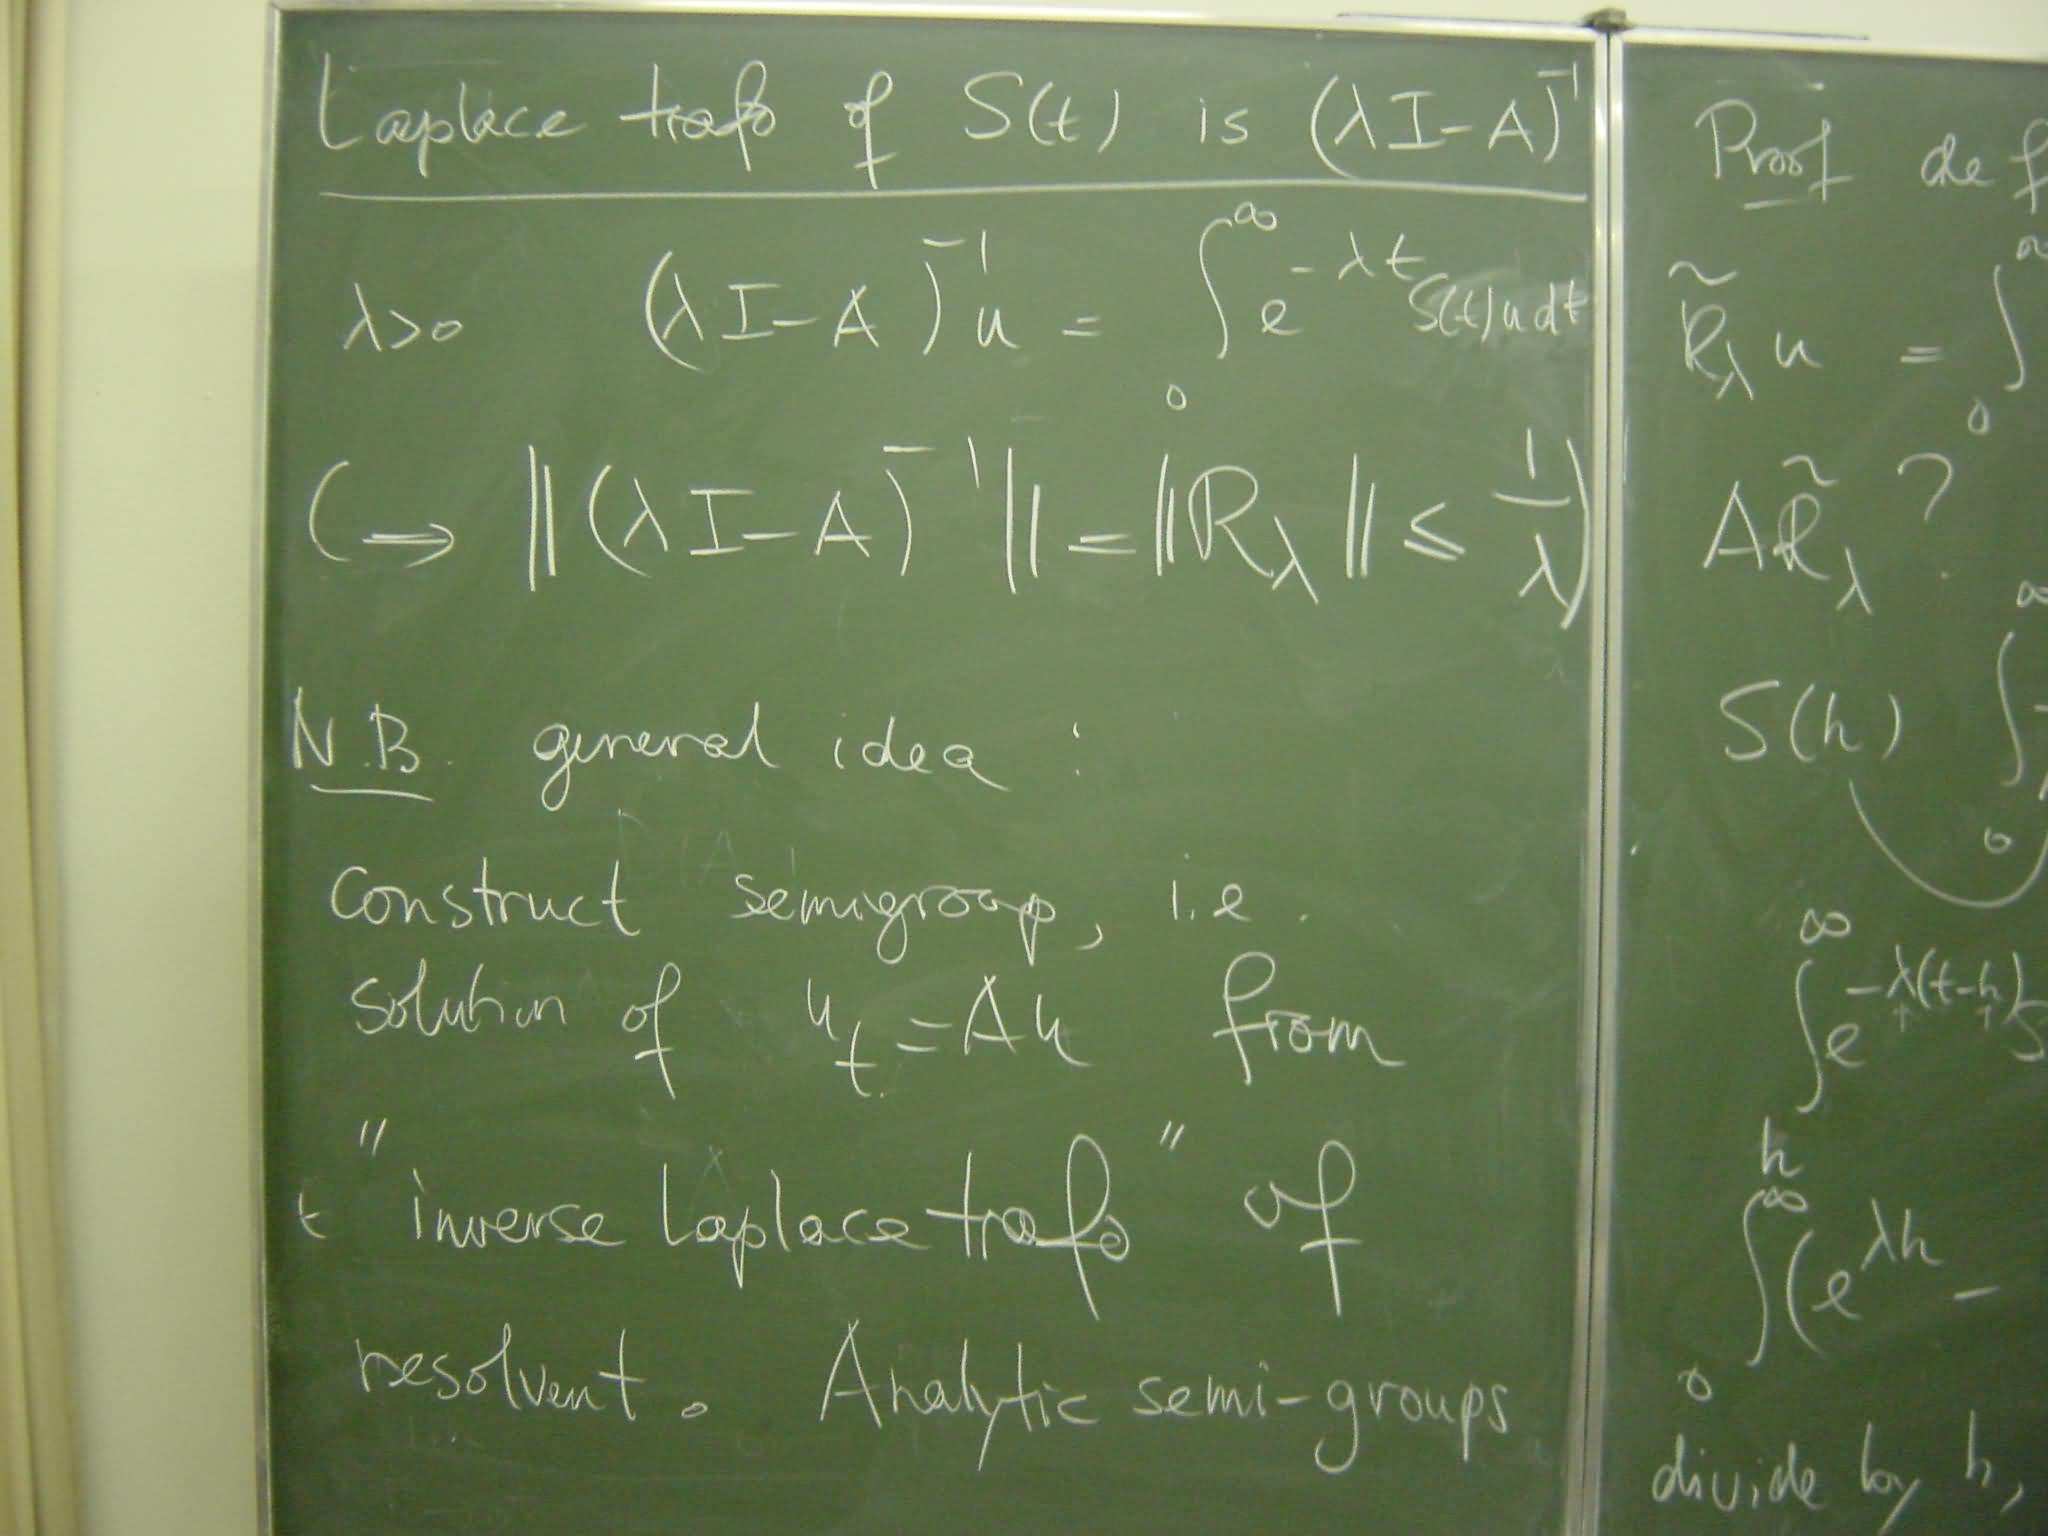 Laplace trafo of S(t) is (λI-A)⁻¹
λ>0 (λI-A)⁻¹u = ∫₀^∞ e^{-λt} S(t)u dt
(→ ‖(λI-A)⁻¹‖ = ‖R_λ‖ ≤ 1/λ)
N.B. general idea :
construct semigroup, i.e.
solution of u_t = Au from
t "inverse Laplace trafo" of
resolvent. Analytic semi-groups
Proof def
R̃_λ u = ∫₀^∞
AR̃_λ ?
S(h) ∫₀^∞
∫_h^∞ e^{-λ(t-h)} S
∫₀^∞ (e^{λh} -
divide by h,